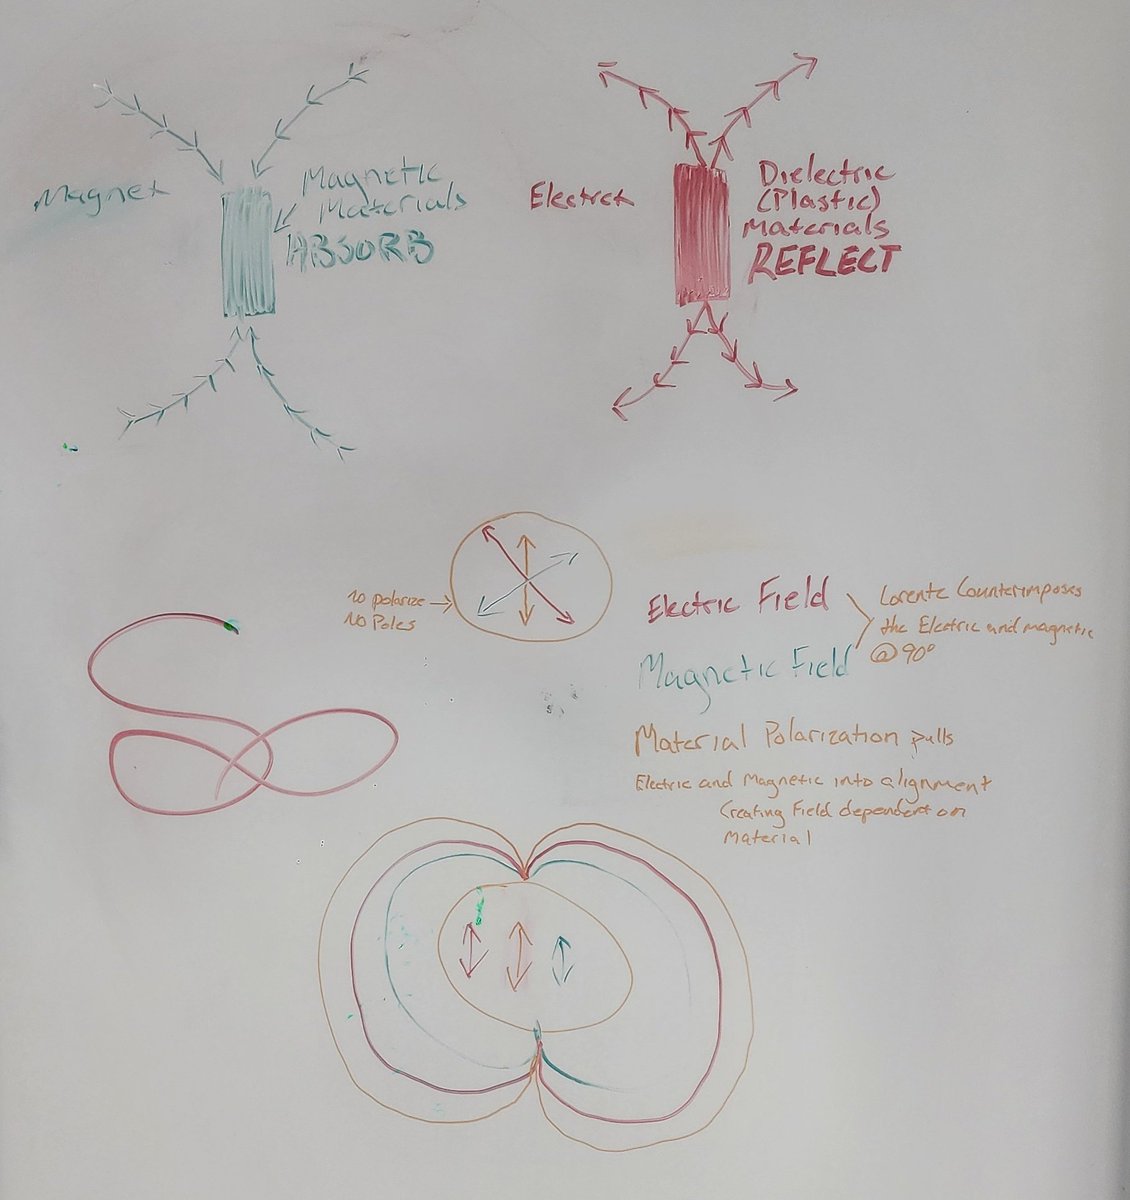 Magnet
Magnetic
Materials
ABSORB
Electret
Dielectric
(Plastic)
Materials
REFLECT
No polarize
No Poles
Electric Field
Magnetic Field
Lorentz Counterimposes
the Electric and magnetic
@ 90°
Material Polarization pulls
Electric and Magnetic into alignment
Creating Field dependent on
Material